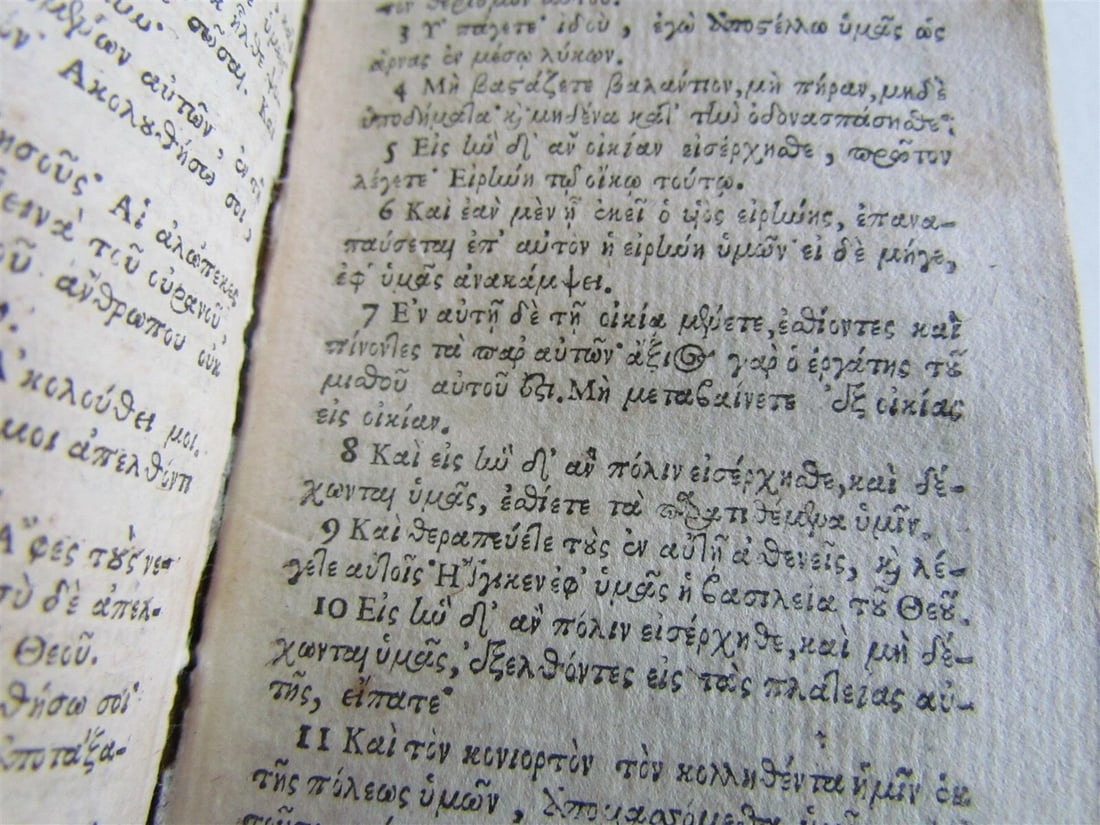 σῶσαι. Καὶ
αὐτῶν, ἐν τῇ
Ακολουθήσω σοι,
ησοῦς· Αἱ ἀλώπεκες
τοῦ οὐρανοῦ
οῦ ἀνθρώπου οὐκ
Ἀκολούθει μοι.
μοι ἀπελθόντι
Ἄφες τοὺς νε-
σὺ δὲ ἀπελ-
Θεοῦ.
θήσω σοι·
ἀποτάξα-
τὸν θερισμὸν αὐτοῦ.
3 Υπάγετε· ἰδοὺ, ἐγὼ ἀποστέλλω ὑμᾶς ὡς
ἄρνας ἐν μέσῳ λύκων.
4 Μὴ βαστάζετε βαλάντιον, μὴ πήραν, μηδὲ
ὑποδήματα· καὶ μηδένα κατὰ τὴν ὁδὸν ἀσπάσησθε·
5 Εἰς ἣν δ' ἂν οἰκίαν εἰσέρχησθε, πρῶτον
λέγετε· Εἰρήνη τῷ οἴκῳ τούτῳ.
6 Καὶ ἐὰν μὲν ᾖ ἐκεῖ ὁ υἱὸς εἰρήνης, ἐπανα-
παύσεται ἐπ' αὐτὸν ἡ εἰρήνη ὑμῶν· εἰ δὲ μήγε,
ἐφ' ὑμᾶς ἀνακάμψει.
7 Ἐν αὐτῇ δὲ τῇ οἰκίᾳ μένετε, ἐσθίοντες καὶ
πίνοντες τὰ παρ' αὐτῶν· ἄξιος γὰρ ὁ ἐργάτης τοῦ
μισθοῦ αὐτοῦ ἐστι. Μὴ μεταβαίνετε ἐξ οἰκίας
εἰς οἰκίαν.
8 Καὶ εἰς ἣν δ' ἂν πόλιν εἰσέρχησθε, καὶ δέ-
χωνται ὑμᾶς, ἐσθίετε τὰ παρατιθέμενα ὑμῖν.
9 Καὶ θεραπεύετε τοὺς ἐν αὐτῇ ἀσθενεῖς, καὶ λέ-
γετε αὐτοῖς· Ἤγγικεν ἐφ' ὑμᾶς ἡ βασιλεία τοῦ Θεοῦ.
10 Εἰς ἣν δ' ἂν πόλιν εἰσέρχησθε, καὶ μὴ δέ-
χωνται ὑμᾶς, ἐξελθόντες εἰς τὰς πλατείας αὐ-
τῆς, εἴπατε·
11 Καὶ τὸν κονιορτὸν τὸν κολληθέντα ἡμῖν ἐκ
τῆς πόλεως ὑμῶν, ἀπομασσόμεθα ὑμῖν